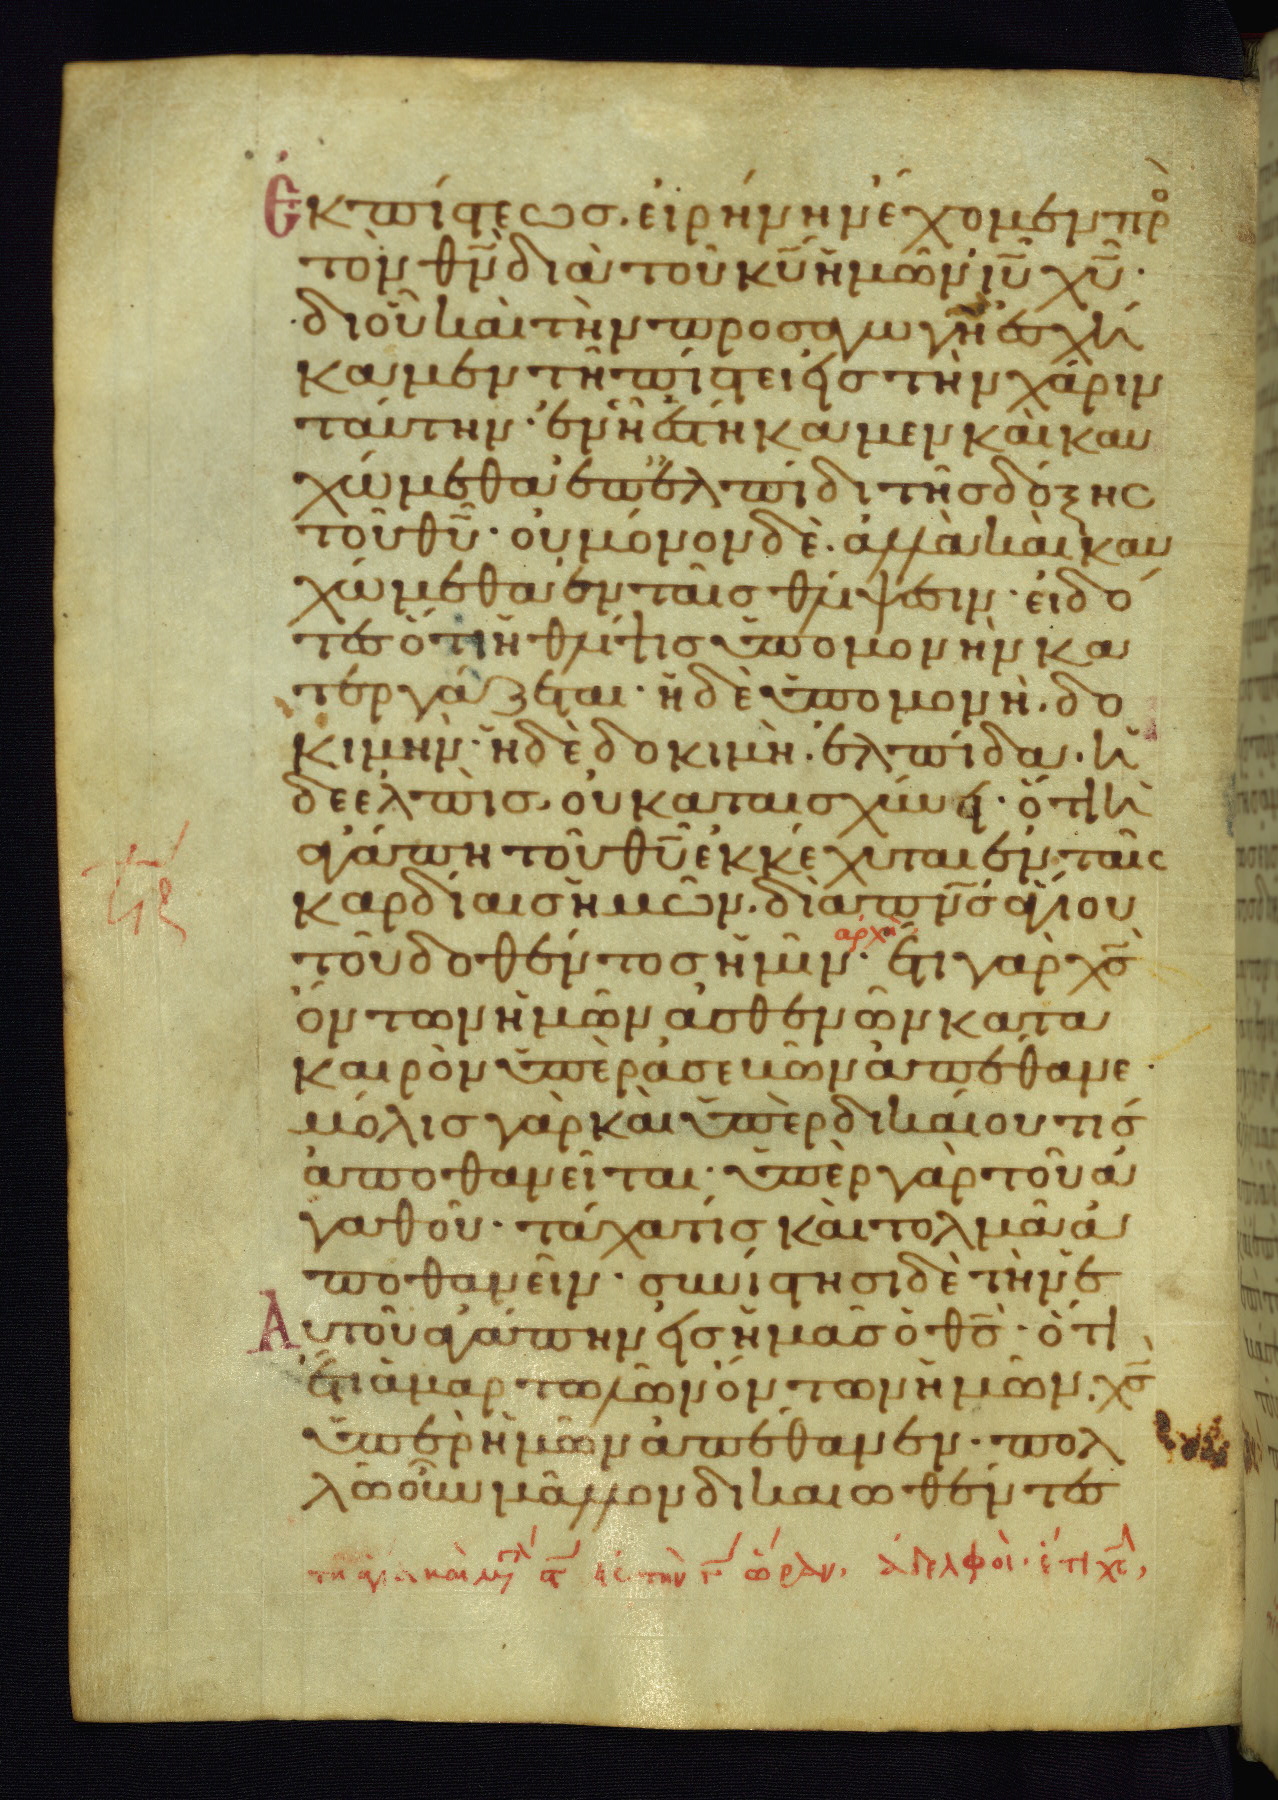 Ἐκ πίστεωσ. εἰρήνην ἔχομεν πρὸ
τὸν θν̅ διὰ τοῦ κυ̅ ἡμῶν ιυ̅ χυ̅·
δι οὗ καὶ τὴν προσαγωγὴν ἐσχή
καμεν τῇ πίστει εἰσ τὴν χάριν
ταύτην· ἐν ᾗ ἑστήκαμεν καὶ καυ
χώμεθα ἐπ ἐλπίδι τῆσ δόξησ
τοῦ θυ̅· οὐ μόνον δὲ. ἀλλὰ καὶ καυ
χώμεθα ἐν ταῖσ θλίψεσιν· εἰδό
τεσ ὅτι ἡ θλίψισ ὑπομονὴν κα
τεργάζεται· ἡ δὲ ὑπομονὴ. δο
κιμήν· ἡ δὲ δοκιμὴ. ἐλπίδα. ἡ
δε ἐλπὶσ. οὐ καταισχύνει· ὅτι ἡ
ἀγάπη τοῦ θυ̅ ἐκκέχυται ἐν ταῖσ
καρδίαισ ἡμῶν. διὰ πν̅σ ἁγίου
ἀρχὴ
τοῦ δοθέντοσ ἡμῖν· ἔτι γὰρ χσ̅
ὄντων ἡμῶν ἀσθενῶν κατα
καιρὸν ὑπὲρ ἀσεβῶν ἀπέθανε·
μόλισ γὰρ καὶ ὑπὲρ δικαίου τισ
ἀποθανεῖται· ὑπὲρ γὰρ τοῦ ἀ
γαθοῦ· τάχα τίσ καὶ τολμᾶ ἀ
ποθανεῖν· συνίστησι δὲ τὴν ἑ
Αυτοῦ ἀγάπην εἰσ ἡμᾶσ ὁ θσ̅· ὅτι
ἔτι ἁμαρτωλῶν ὄντων ἡμῶν. χσ̅
ὑπὲρ ἡμῶν ἀπέθανεν· πολ
λῶ οὖν μᾶλλον δικαιωθέντεσ
τῆ ἁγία καὶ μγ α εἰσ τὴν γ ὥραν. ἀδελφοὶ· ἔτι χσ̅,